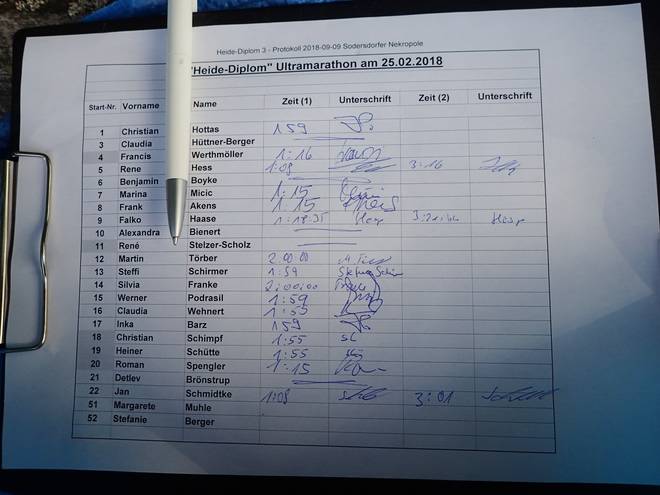 Heide-Diplom 3 - Protokoll 2018-09-09 Sodersdorfer Nekropole
"Heide-Diplom" Ultramarathon am 25.02.2018
Start-Nr. Vorname Name Zeit (1) Unterschrift Zeit (2) Unterschrift
1 Christian Hottas 159
3 Claudia Hüttner-Berger
4 Francis Werthmöller 1:16
5 Rene Hess 1:08 3:16
6 Benjamin Boyke
7 Marina Micic 1:15
8 Frank Akens 1 15
9 Falko Haase 1:18:35
10 Alexandra Bienert
11 René Stelzer-Scholz
12 Martin Törber 2:00:00
13 Steffi Schirmer 1:59
14 Silvia Franke 2:00:00
15 Werner Podrasil 1:59
16 Claudia Wehnert 1:55
17 Inka Barz 159
18 Christian Schimpf 1:55
19 Heiner Schütte 1:55
20 Roman Spengler 1:15
21 Detlev Brönstrup
22 Jan Schmidtke 1:08 3:01
51 Margarete Muhle
52 Stefanie Berger